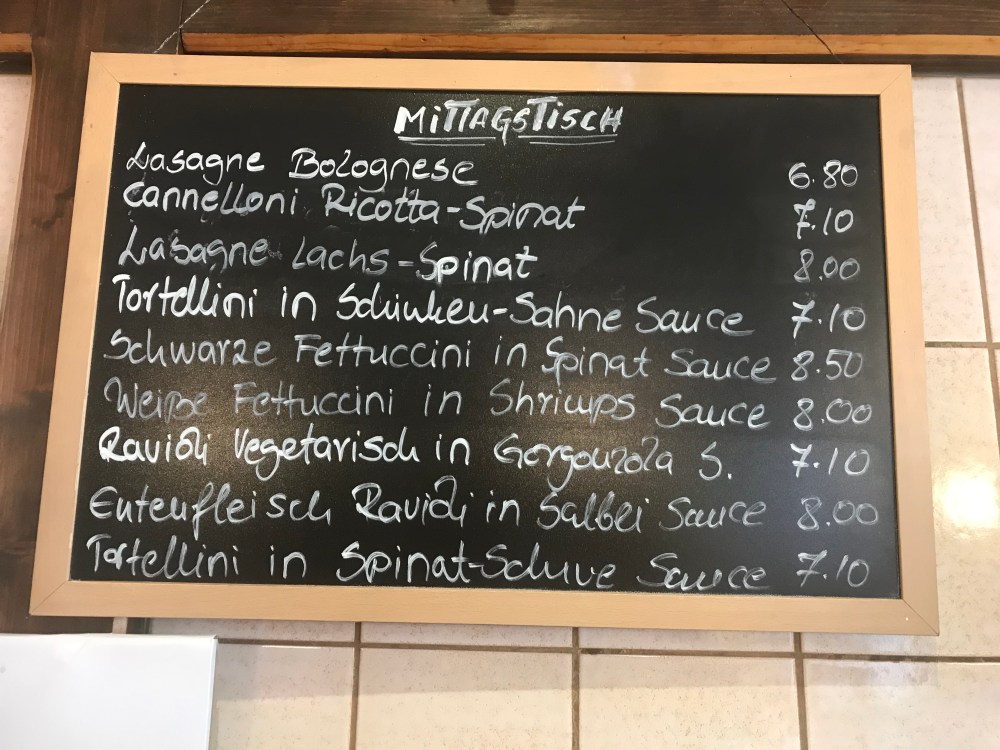 MITTAGSTISCH
Lasagne Bolognese 6.80
Cannelloni Ricotta-Spinat 7.10
Lasagne Lachs-Spinat 8.00
Tortellini in Schinken-Sahne Sauce 7.10
Schwarze Fettuccini in Spinat Sauce 8.50
Weiße Fettuccini in Shrimps Sauce 8.00
Ravioli Vegetarisch in Gorgonzola S. 7.10
Entenfleisch Ravioli in Salbei Sauce 8.00
Tortellini in Spinat-Schuve Sauce 7.10